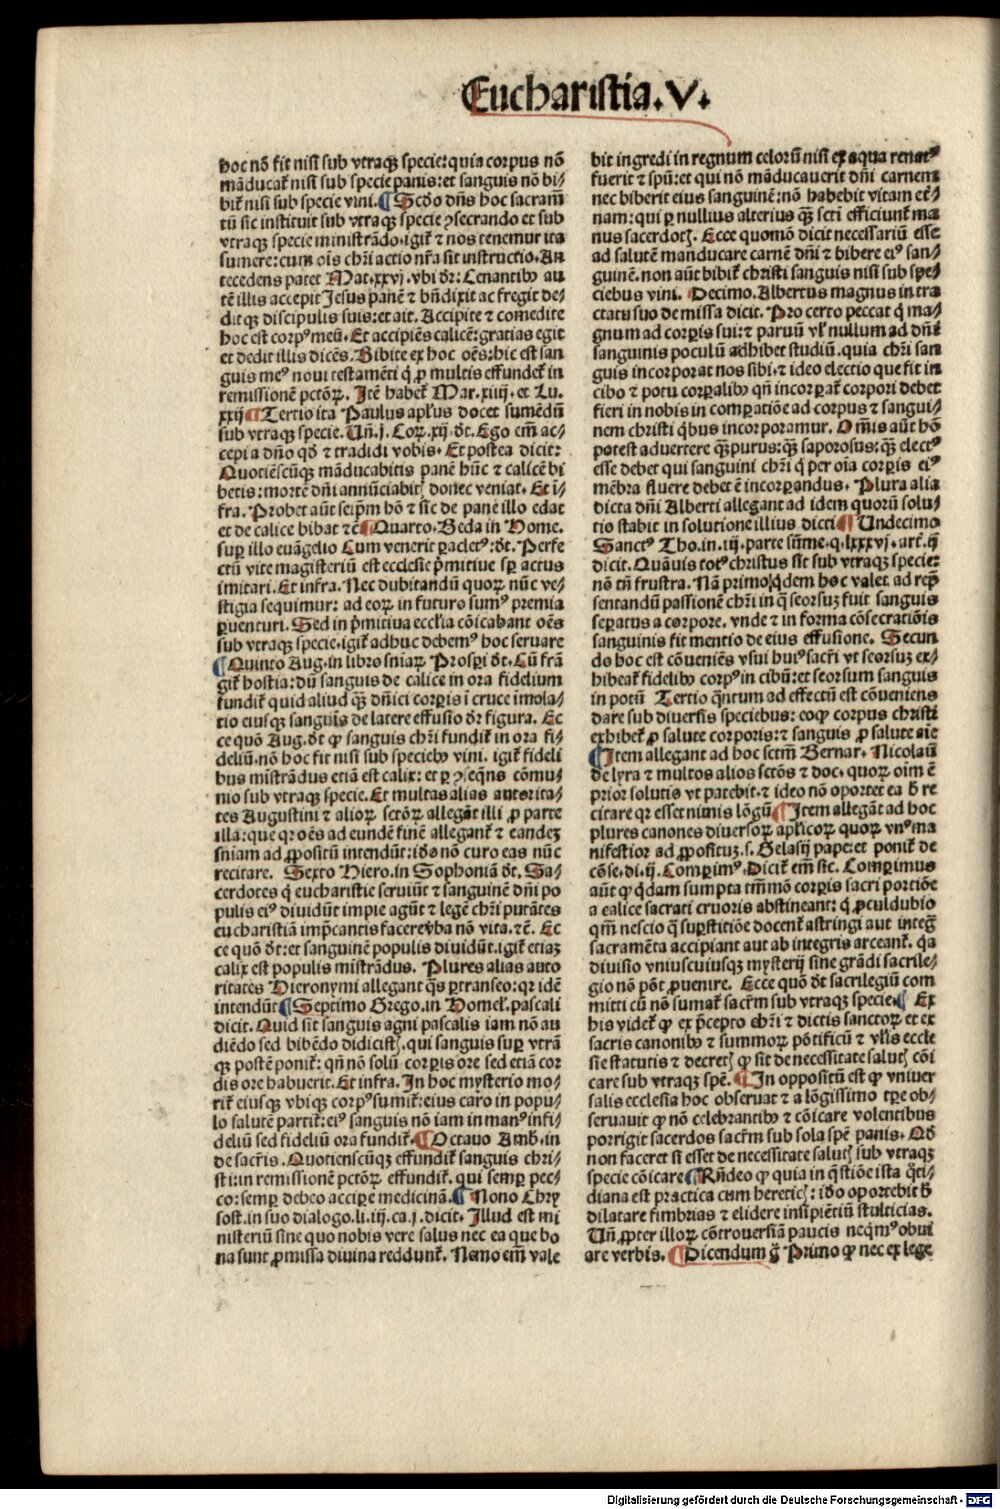 Eucharistia.V.
hoc nō fit nisi sub vtraqꝫ specie: quia corpus nō
māducat̄ nisi sub specie panis: et sanguis nō bi⸗
bit̄ nisi sub specie vini. ¶ Scd̄o dn̄s hoc sacram̄
tū sic instituit sub vtraqꝫ specie ꝯsecrando et sub
vtraqꝫ specie ministrādo. igit̄ ⁊ nos tenemur ita
sumere: cum oīs chr̄i actio nr̄a sit instructio. An
tecedens patet Mat. xxvj. vbi dr̄: Cenantibꝰ au
tē illis accepit Jesus panē ⁊ bn̄dixit ac fregit de⸗
ditqꝫ discipulis suis: et ait. Accipite ⁊ comedite
hoc est corpꝰ meū. Et accipiēs calicē: gratias egit
et dedit illis dicēs. Bibite ex hoc oēs: hic est san
guis meꝰ noui testamēti q̇ ꝓ multis effundet̄ in
remissionē pctōꝝ. Itē habet̄ Mar. xiiij. et Lu.
xxij ¶ Tertio ita Paulus apl̄us docet sumēdū
sub vtraqꝫ specie. Un̄. j. Coꝝ. xj. dt̄. Ego em̄ ac⸗
cepi a dn̄o qd̄ ⁊ tradidi vobis. Et postea dicit:
Quotiēscūqꝫ māducabitis panē hūc ⁊ calicē bi
betis: mortē dn̄i annūciabitꝭ donec veniat. Et i⸗
fra. Probet aūt seip̄m hō ⁊ sic de pane illo edat
et de calice bibat ⁊c̄ ¶ Quarto. Beda in Home.
suꝑ illo euāgelio Cum venerit ꝑacletꝰ: dt̄. Perfe
ctū vite magisteriū est ecclesie p̄mitiue sꝑ actus
imitari. Et infra. Nec dubitandū quoꝝ nūc ve⸗
stigia sequimur: ad eoꝝ in futuro sumꝰ premia
ꝑuenturi. Sed in p̄mitiua eccl̄ia cōicabant oēs
sub vtraqꝫ specie. igit̄ adhuc debemꝰ hoc seruare
¶ Quinto Aug. in libro sn̄iaꝝ Prosꝑi dt̄. Cū frā
git̄ hostia: dū sanguis de calice in ora fidelium
fundit̄ quid aliud qꝫ̄ dn̄ici corꝑis ī cruce īmola⸗
tio eiusqꝫ sanguis de latere effusio dr̄ figura. Ec
ce quō Aug. dt̄ ꝙ sanguis chr̄i fundit̄ in ora fi⸗
deliū. nō hoc fit nisi sub speciebꝰ vini. igit̄ fideli
bus mīstrādus etiā est calix: et ꝑ ꝯseq̄ns cōmu⸗
nio sub vtraqꝫ specie. Et multas alias autorita⸗
tes Augustini ⁊ alioꝝ sctōꝝ allegāt illi ꝓ parte
illa: que qr̄ oēs ad eundē finē allegant̄ ⁊ eandeꝫ
sn̄iam ad ꝓpositū intendūt: id̄o nō curo eas nūc
recitare. Sexto Hiero. in Sophoniā dt̄. Sa⸗
cerdotes q̇ eucharistie seruiūt ⁊ sanguinē dn̄i po
pulis eiꝰ diuidūt impie agūt ⁊ legē chr̄i putātes
eucharistiā imp̄cantis facere v̄ba nō vita. ⁊c̄. Ec
ce quō dt̄: et sanguinē populis diuidūt. igit̄ etiaꝫ
calix est populis mīstrādus. Plures alias auto
ritates Hieronymi allegant q̄s ꝑtranseo: qr̄ idē
intendūt ¶ Septimo Grego. in Homel̄. pascali
dicit. Quid sit sanguis agni pascalis iam nō au
diēdo sed bibēdo didicistꝭ. qui sanguis suꝑ vtrā
qꝫ postē ponit̄: qn̄ nō solū corꝑis ore sed etiā cor
dis ore haurit̄. Et infra. In hoc mysterio mo⸗
rit̄ eiusqꝫ vbiqꝫ corpꝰ sumit̄: eius caro in popu⸗
lo salutē partit̄: eiꝰ sanguis nō iam in manꝰ infi⸗
deliū sed fideliū ora fundit̄. ¶ Octauo Amb. in
de sacr̄is. Quotienscūqꝫ effundit̄ sanguis chri⸗
sti: in remissionē pctōꝝ effundit̄. qui semꝑ pec⸗
co: semꝑ debeo acciꝑe medicinā. ¶ Nono Chry
sost. in suo dialogo. li. iij. ca. j. dicit. Illud est mi
nisteriū sine quo nobis vere salus nec ea que bo
na sunt ꝓmissa diuina reddunt̄. Nemo em̄ vale
bit ingredi in regnum celorū nisi ex aqua renatꝰ
fuerit ⁊ spū: et qui nō māducauerit dn̄i carnem
nec biberit eius sanguinē: nō habebit vitam et̄⸗
nam: qui ꝑ nullius alterius qꝫ̄ sctī efficiunt̄ ma
nus sacerdotꝭ. Ecce quomō dicit necessariū esse
ad salutē manducare carnē dn̄i ⁊ bibere eiꝰ san⸗
guinē. non aūt bibit̄ christi sanguis nisi sub spe⸗
ciebus vini. Decimo. Albertus magnus in tra
ctatu suo de missa dicit. Pro certo peccat q̇ ma⸗
gnum ad corꝑis sui: ⁊ paruū vl̄ nullum ad dn̄i
sanguinis poculū adhibet studiū. quia chr̄i san
guis incorporat nos sibi. ⁊ ideo electio que fit in
cibo ⁊ potu corꝑalibꝰ qn̄ incorꝑat̄ corpori debet
fieri in nobis in comꝑatiōe ad corpus ⁊ sangui⸗
nem christi q̇bus incorporamur. Omīs aūt hō
potest aduertere qꝫ̄ purus: qꝫ̄ saporosus: qꝫ̄ electꝰ
esse debet qui sanguini chr̄i q̇ per oīa corꝑis eiꝰ
mēbra fluere debet ē incorꝑandus. Plura alia
dicta dn̄i Alberti allegant ad idem quorū solu⸗
tio stabit in solutione illius dicti ¶ Undecimo
Sanctꝰ Tho. in. iij. parte sūme. q. lxxxvj. art̄. ij
dicit. Quāuis totꝰ christus sit sub vtraqꝫ specie:
nō tn̄ frustra. Nā primo q̇dem hoc valet ad rep̄
sentandū passionē chr̄i in q̄ seorsuꝫ fuit sanguis
seꝑatus a corpore. vnde ⁊ in forma cōsecratiōis
sanguinis fit mentio de eius effusione. Secun
do hoc est cōueniēs vsui huiꝰ sacr̄i vt seorsuꝫ ex⸗
hibeat̄ fidelibꝰ corpꝰ in cibū: et seorsum sanguis
in potū Tertio q̄ntum ad effectū est cōueniens
dare sub diuersis speciebus: eo ꝙ corpus christi
exhibet̄ ꝓ salute corporis: ⁊ sanguis ꝓ salute aīe
¶ Item allegant ad hoc sctm̄ Bernar. Nicolaū
de lyra ⁊ multos alios sctōs ⁊ doc. quoꝝ oīm ē
prior solutis vt patebit. ⁊ ideo nō oportet ea h̄ re
citare qr̄ esset nimis lōgū ¶ Item allegāt ad hoc
plures canones diuersoꝝ apl̄icoꝝ quoꝝ vnꝰ ma
nifestior ad ꝓpositus. s. Gelasij pape: et ponit̄ de
cōse. di. ij. Comꝑimꝰ. Dicit̄ em̄ sic. Comꝑimus
aūt ꝙ q̇dam sumpta tm̄mō corꝑis sacri portiōe
a calice sacrati cruoris abstineant: q̇ ꝓculdubio
qm̄ nescio q̇ suꝑstitiōe docent̄ astringi aut integꝭ
sacramēta accipiant aut ab integris arceant̄. q̇a
diuisio vniuscuiusqꝫ mysterij sine grādi sacrile⸗
gio nō pōt ꝓuenire. Ecce quō dt̄ sacrilegiū com
mitti cū nō sumat̄ sacr̄m sub vtraqꝫ specie. ¶ Ex
his videt̄ ꝙ ex p̄cepto chr̄i ⁊ dictis sanctoꝝ et ex
sacris canonibꝰ ⁊ summoꝝ pōtificū ⁊ vl̄is eccle
sie statutis ⁊ decretꝭ ꝙ sit de necessitate salutꝭ cōi
care sub vtraqꝫ spē. ¶ In oppositū est ꝙ vniuer
salis ecclesia hoc obseruat ⁊ a lōgissimo tꝑe ob⸗
seruauit ꝙ nō celebrantibꝰ ⁊ cōicare volentibus
porrigit sacerdos sacr̄m sub sola spē panis. Qd̄
non faceret si esset de necessitate salutꝭ sub vtraqꝫ
specie cōicare ¶ Rn̄deo ꝙ quia in q̄stiōe ista q̊ti⸗
diana est practica cum hereticꝭ: id̄o oportebit h̄
dilatare fimbrias ⁊ elidere insipiētiū stulticias.
Un̄ ꝓpter illoꝝ cōtrouersiā paucis neq̇mꝰ obui
are verbis. ¶ Dicendum g̊ Primo ꝙ nec ex lege
Digitalisierung gefördert durch die Deutsche Forschungsgemeinschaft - DFG